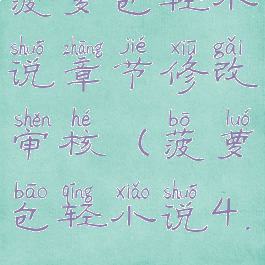 菠萝包轻小
shuō zhāng jié xiū gǎi
说章节修改
shěn hé bō luó
审核(菠萝
bāo qīng xiǎo shuō
包轻小说4.